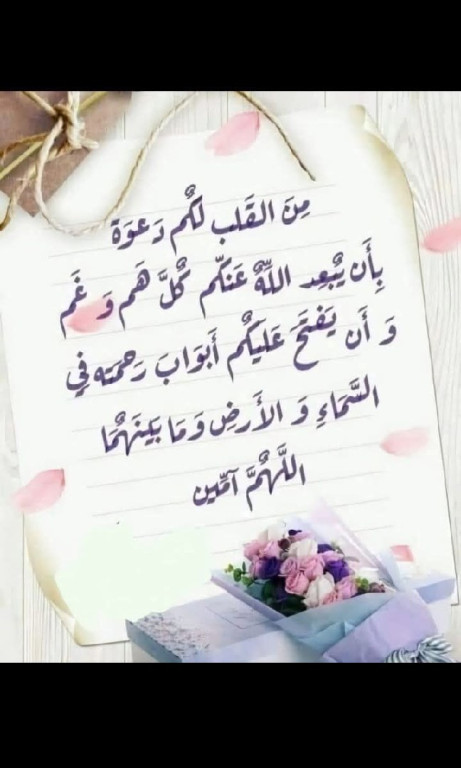 مِنَ القَلب لكُم دَعوَة
بِأَن يُبعِد اللّهُ عَنكُم كُلَّ هَم وَ غَم
وَ أَن يَفتَحَ عَليكُم أَبوَابَ رَحمَته في
السَّمَاءِ وَ الأَرضِ وَمَا بَينَهُمَا
اللَّهُمَّ آمِّين